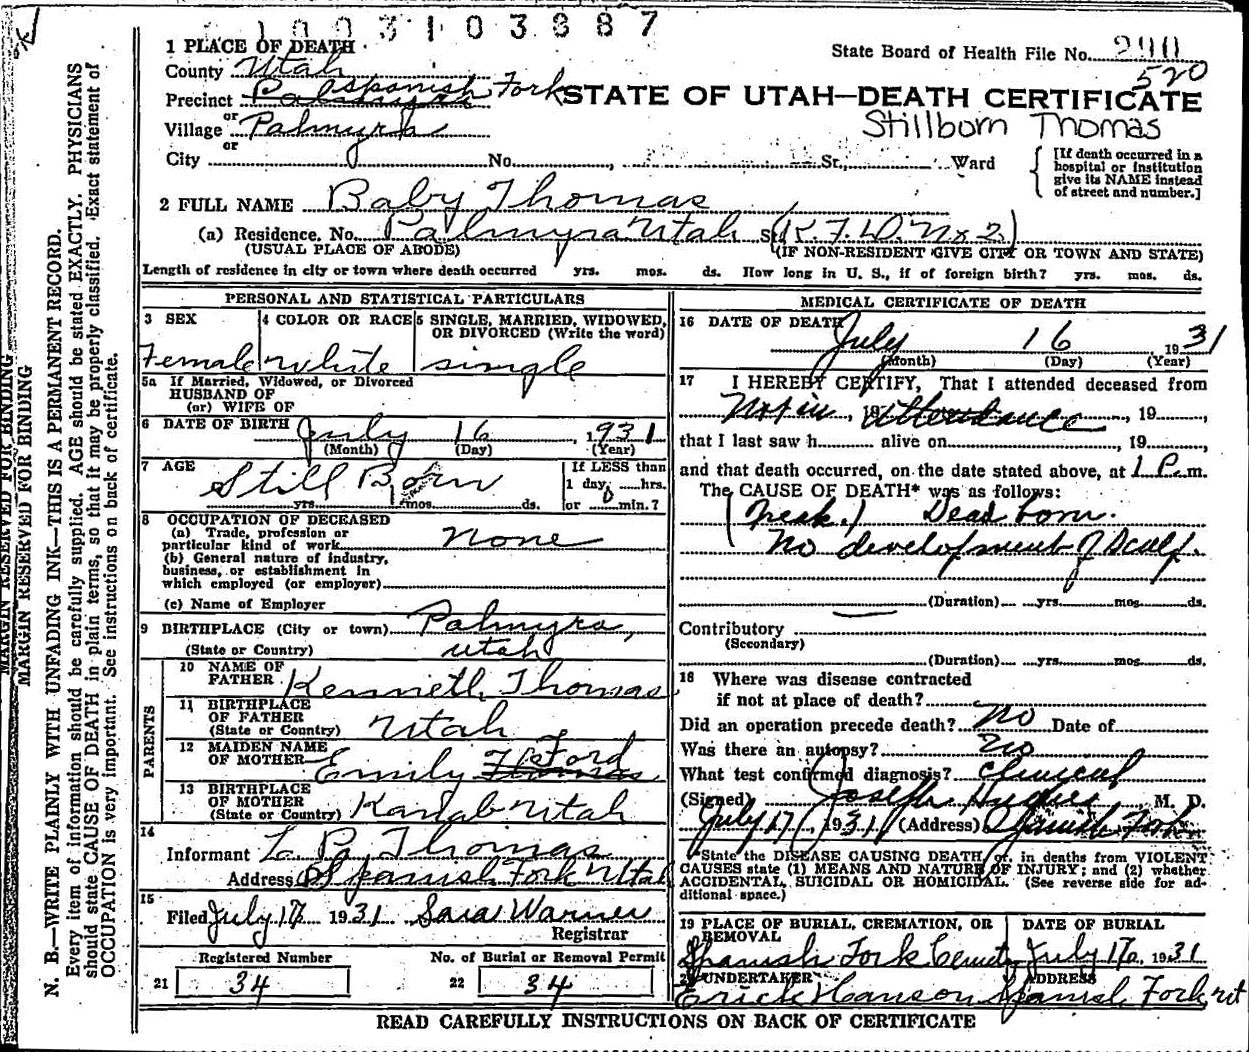 1003103887
1 PLACE OF DEATH
State Board of Health File No. 290
County Utah
520
Precinct Palmyra Spanish Fork
STATE OF UTAH—DEATH CERTIFICATE
or
Village Palmyra
Stillborn Thomas
or
City No. , St., Ward
[If death occurred in a hospital or institution give its NAME instead of street and number.]
2 FULL NAME Baby Thomas
(a) Residence. No. Palmyra Utah St. (R.F.D. No 2)
(USUAL PLACE OF ABODE) (IF NON-RESIDENT GIVE CITY OR TOWN AND STATE)
Length of residence in city or town where death occurred yrs. mos. ds. How long in U. S., if of foreign birth? yrs. mos. ds.
PERSONAL AND STATISTICAL PARTICULARS
3 SEX
4 COLOR OR RACE
5 SINGLE, MARRIED, WIDOWED,
OR DIVORCED (Write the word)
Female white single
5a If Married, Widowed, or Divorced
HUSBAND OF
(or) WIFE OF
6 DATE OF BIRTH July 16, 1931
(Month) (Day) (Year)
7 AGE Still Born
If LESS than
1 day, hrs.
yrs. mos. ds. or min.?
8 OCCUPATION OF DECEASED
(a) Trade, profession or
particular kind of work none
(b) General nature of industry,
business, or establishment in
which employed (or employer)
(c) Name of Employer
9 BIRTHPLACE (City or town) Palmyra,
(State or Country) Utah
PARENTS
10 NAME OF
FATHER Kenneth Thomas
11 BIRTHPLACE
OF FATHER
(State or Country) Utah
12 MAIDEN NAME
OF MOTHER Emily Thomas Ford
13 BIRTHPLACE
OF MOTHER
(State or Country) Kanab Utah
14
Informant L P Thomas
Address Spanish Fork Utah
15
Filed July 17 1931 Sara Warner
Registrar
Registered Number No. of Burial or Removal Permit
21 34 22 34
MEDICAL CERTIFICATE OF DEATH
16 DATE OF DEATH July 16 1931
(Month) (Day) (Year)
17 I HEREBY CERTIFY, That I attended deceased from
Not in, 19 attendance, 19
that I last saw h alive on , 19
and that death occurred, on the date stated above, at 1 P. m.
The CAUSE OF DEATH* was as follows:
Dead born.
No development of Scalp.
(Duration) yrs. mos. ds.
Contributory
(Secondary)
(Duration) yrs. mos. ds.
18 Where was disease contracted
if not at place of death?
Did an operation precede death? No Date of
Was there an autopsy? No
What test confirmed diagnosis? Clinical
(Signed) Joseph Hughes, M. D.
July 17, 1931 (Address) Spanish Fork
*State the DISEASE CAUSING DEATH, or, in deaths from VIOLENT
CAUSES state (1) MEANS AND NATURE OF INJURY; and (2) whether
ACCIDENTAL, SUICIDAL OR HOMICIDAL. (See reverse side for ad-
ditional space.)
19 PLACE OF BURIAL, CREMATION, OR
REMOVAL
DATE OF BURIAL
Spanish Fork Cemete July 17, 1931
20 UNDERTAKER ADDRESS
Erick Hanson Spanish Fork ut
READ CAREFULLY INSTRUCTIONS ON BACK OF CERTIFICATE
MARGIN RESERVED FOR BINDING
MARGIN RESERVED FOR BINDING
N. B.—WRITE PLAINLY WITH UNFADING INK—THIS IS A PERMANENT RECORD.
Every item of information should be carefully supplied. AGE should be stated EXACTLY. PHYSICIANS
should state CAUSE OF DEATH in plain terms, so that it may be properly classified. Exact statement of
OCCUPATION is very important. See instructions on back of certificate.